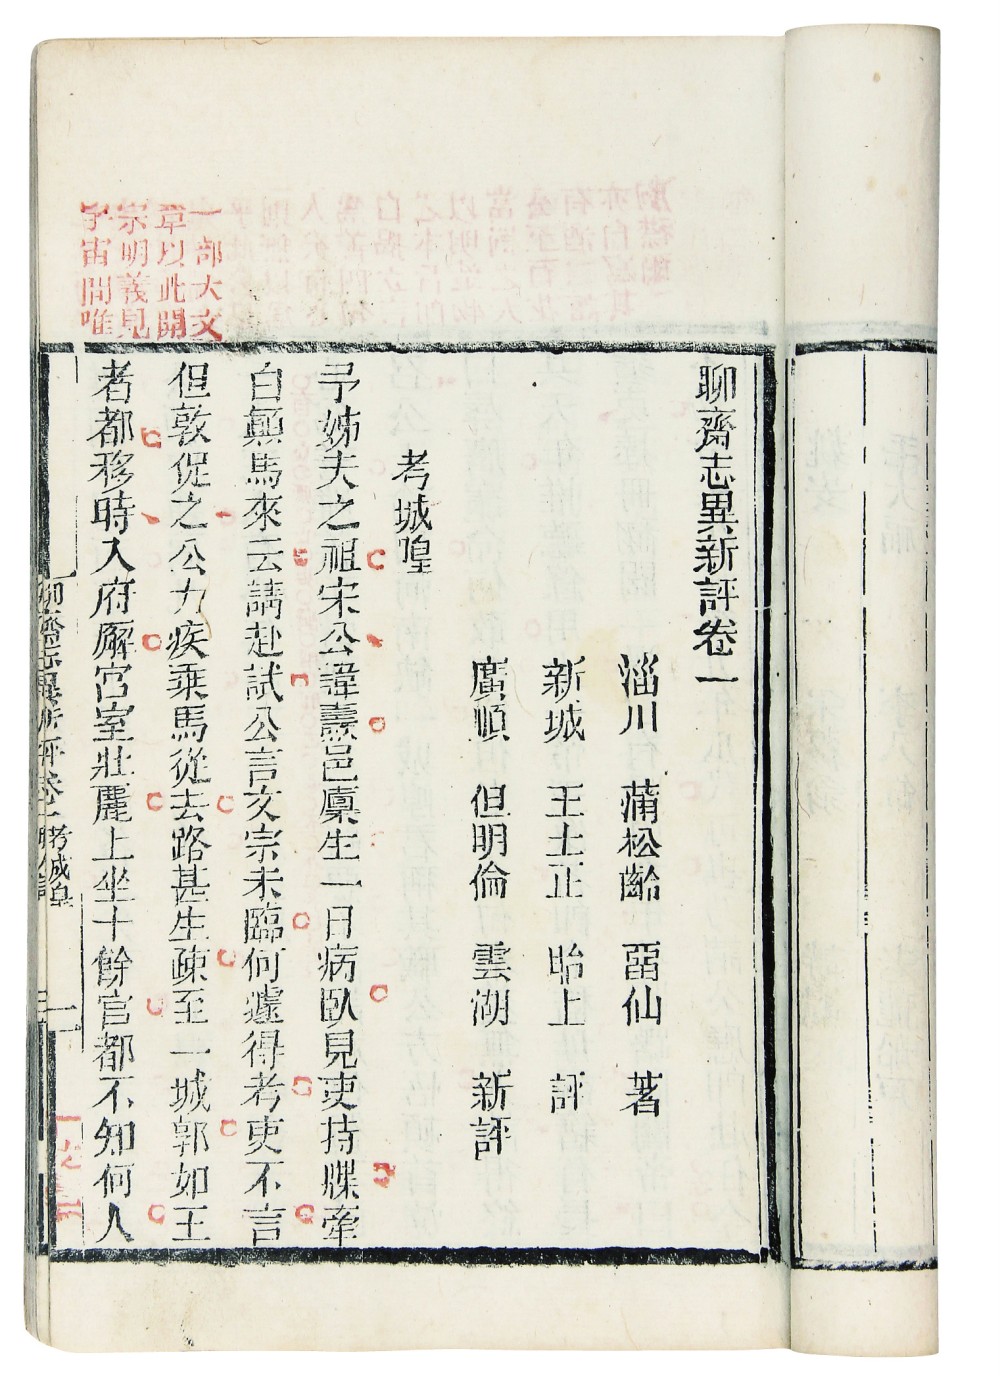 聊齋志異新評卷一
淄川 蒲松齡 畱仙 著
新城 王士正 貽上 評
廣順 但明倫 雲湖 新評
考城隍
予姊夫之祖宋公諱燾邑廩生一日病臥見吏持牒牽
白顚馬來云請赴試公言文宗未臨何遽得考吏不言
但敦促之公力疾乘馬從去路甚生疎至一城郭如王
者都移時入府廨宮室壯麗上坐十餘官都不知何人
一部大文
章以此開
宗明義見
宇宙間唯
聊齋志異新評卷一 考城隍